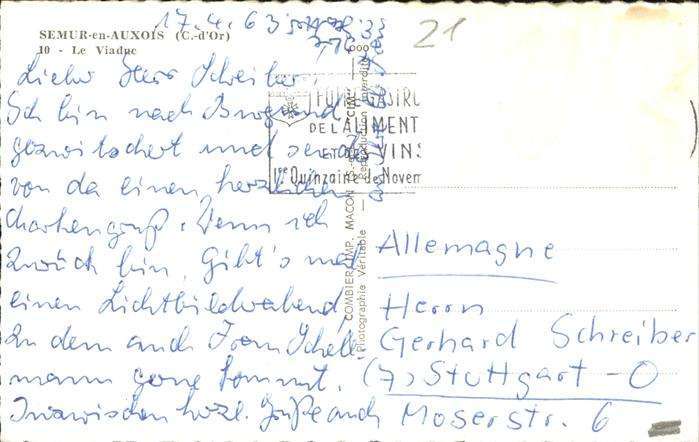 17.4.63
21
SEMUR-en-AUXOIS (C.-d'Or)
10 - Le Viaduc
Lieber Herr Schreiber,
Ich bin nach Burgund
gezwitschert und sende
von da einen herzlichen
Kartengruß. Wenn ich
zurück bin, gibt's mal
einen Lichtbilderabend,
zu dem auch Frau Schell-
mann gerne kommt.
Inzwischen herzl. Grüße auch
DE L'ALIMENT
ET DES VINS
1re Quinzaine de Novem
COMBIER IMP. MACON
Photographie Véritable
Reproduction interdite
Allemagne
Herrn
Gerhard Schreiber
(7) Stuttgart - O
Moserstr. 6